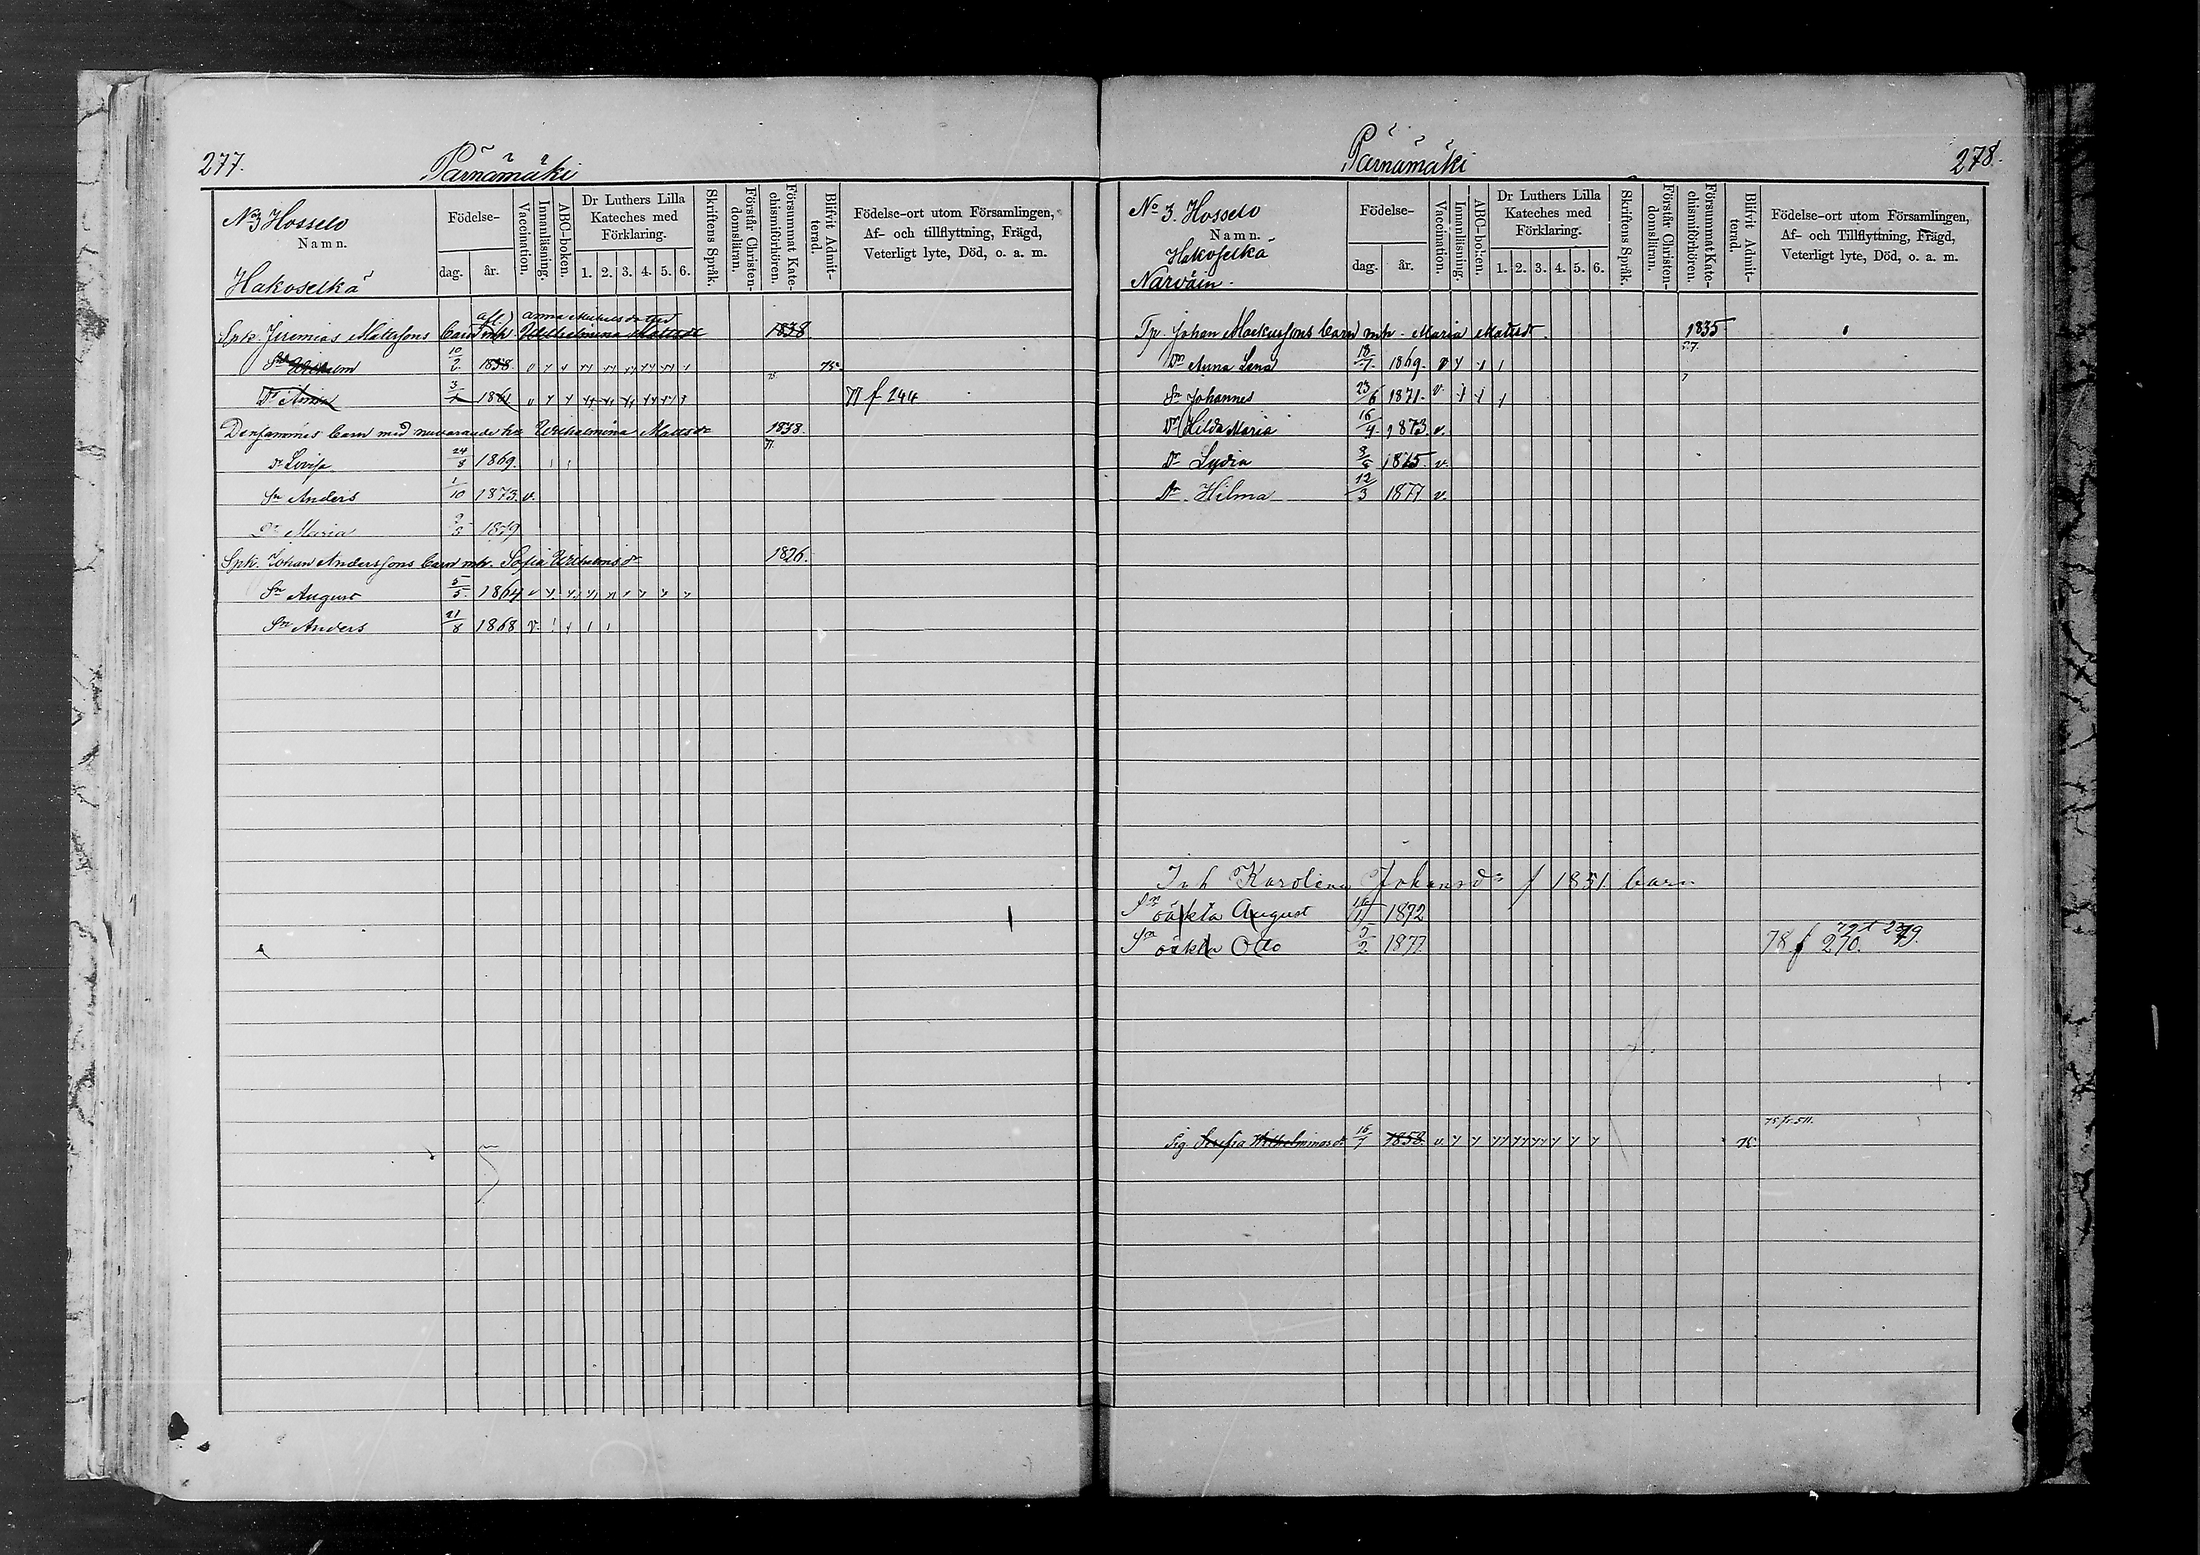 277. Pärnämäki
No 3 Hosselo
Namn.
Hakoselkä
Födelse-
dag. år.
Vaccination.
Innanläsning.
ABC-boken.
Dr Luthers Lilla
Kateches med
Förklaring.
1. 2. 3. 4. 5. 6.
Skriftens Språk.
Förstår Christen-
domsläran.
Försummat Kate-
chismiförhören.
Blifvit Admit-
terad.
Födelse-ort utom Församlingen,
Af- och tillflyttning, Frägd,
Veterligt lyte, Död, o. a. m.
Anna
Jeremias Mattssons barn Wilhelmina Mattsdr 1838
Sn Wilhelm 1858 75
Dr 3/1 1861 77 f 244
Densammes barn med nuvarande h. Wilhelmina Mattsdr 1838.
77.
Dr Lovisa 24/8 1869
Sn Anders 1/10 1873 v.
Dr Maria 1879
Johan Anderssons barn mh. Sofia Wilhelmsdr 1826.
Sn August 5/5 1864
Sn Anders 21/8 1868 v.
Pärnämäki 278.
No 3. Hosselo
Namn.
Hakoselkä
Närväin.
Födelse-
dag. år.
Vaccination.
Innanläsning.
ABC-boken.
Dr Luthers Lilla
Kateches med
Förklaring.
1. 2. 3. 4. 5. 6.
Skriftens Språk.
Förstår Christen-
domsläran.
Försummat Kate-
chismiförhören.
Blifvit Admit-
terad.
Födelse-ort utom Församlingen,
Af- och Tillflyttning, Frägd,
Veterligt lyte, Död, o. a. m.
Tp. Johan Markussons barn mh. Maria Mattsdr. 1835
77.
Dr Anna Lena 18/7 1869. v
Sn Johannes 23/6 1871. v.
Dr Hilda Maria 16/4 1873. v.
Dr Lydia 1875. v.
Dr Hilma 12/3 1877 v.
Inh Karolina Johansdr f 1851 barn
Sn oäkta August 1872
Sn oäkta Otto 5/2 1877 78 f 270. 79.
75 fr. 511.
Pig. Sofia Wilhelminasdr 16/7 1858 v. 75.